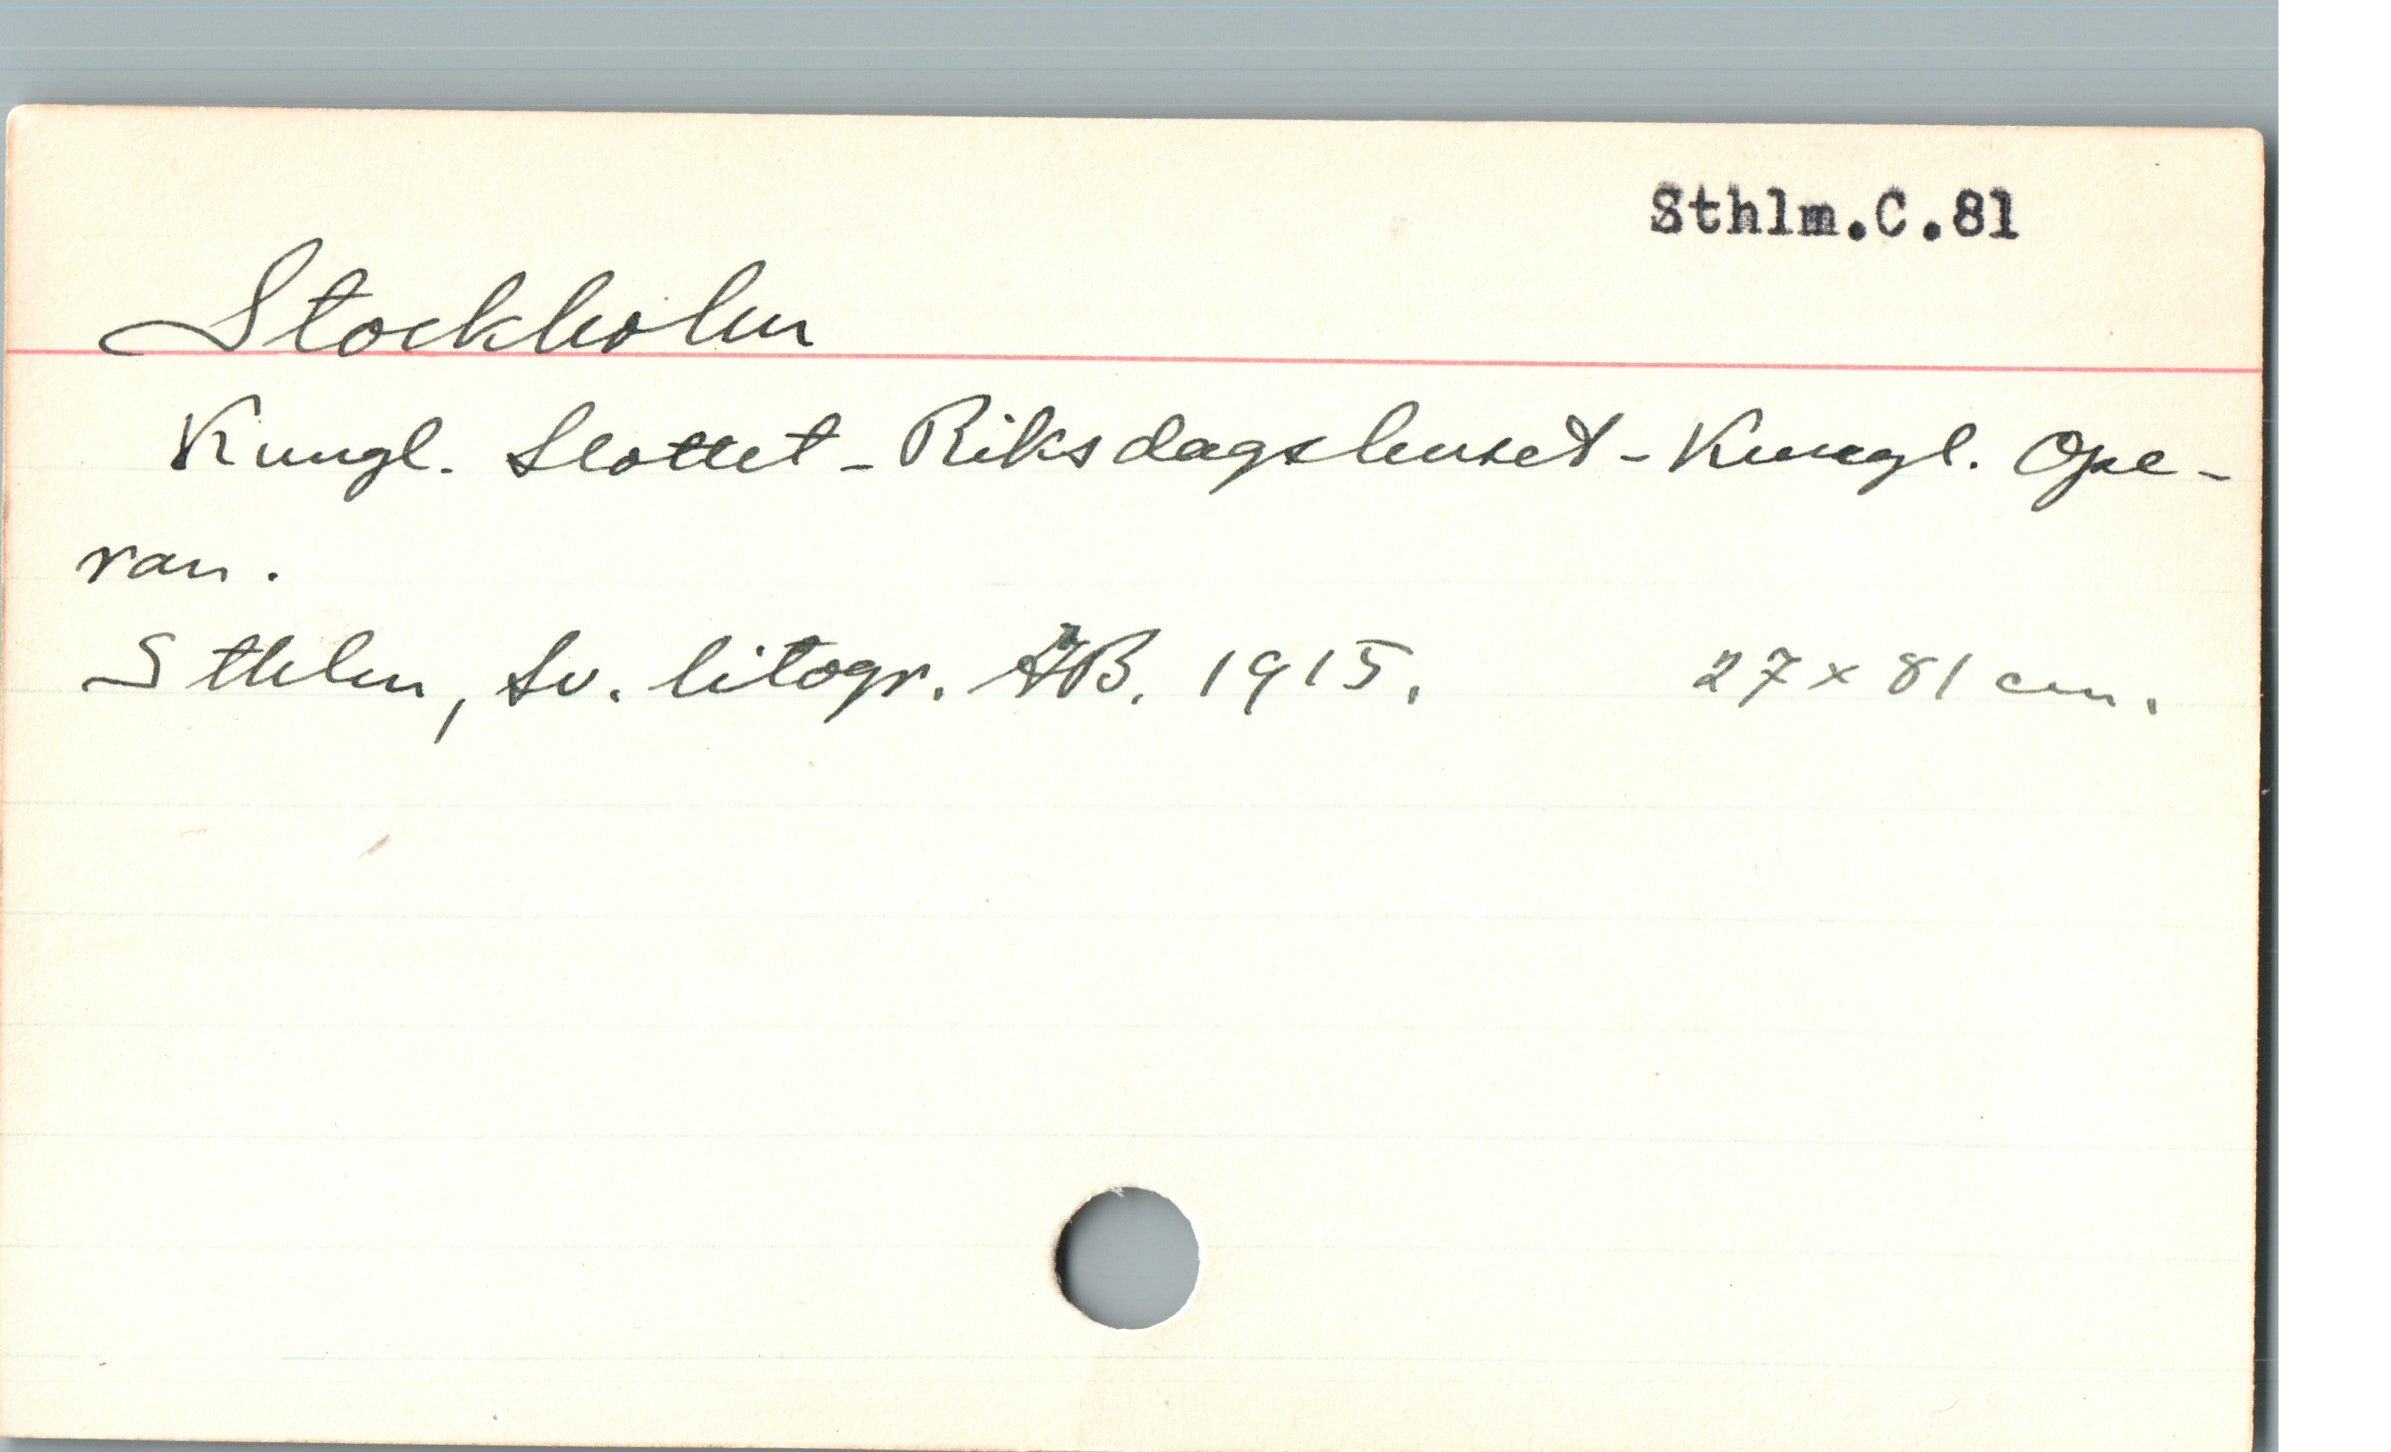 Sthlm.C.81
Stockholm
Kungl. Slottet - Riksdagshuset - Kungl. Ope-
ran.
Sthlm, Sv. litogr. AB. 1915. 27 x 81 cm.